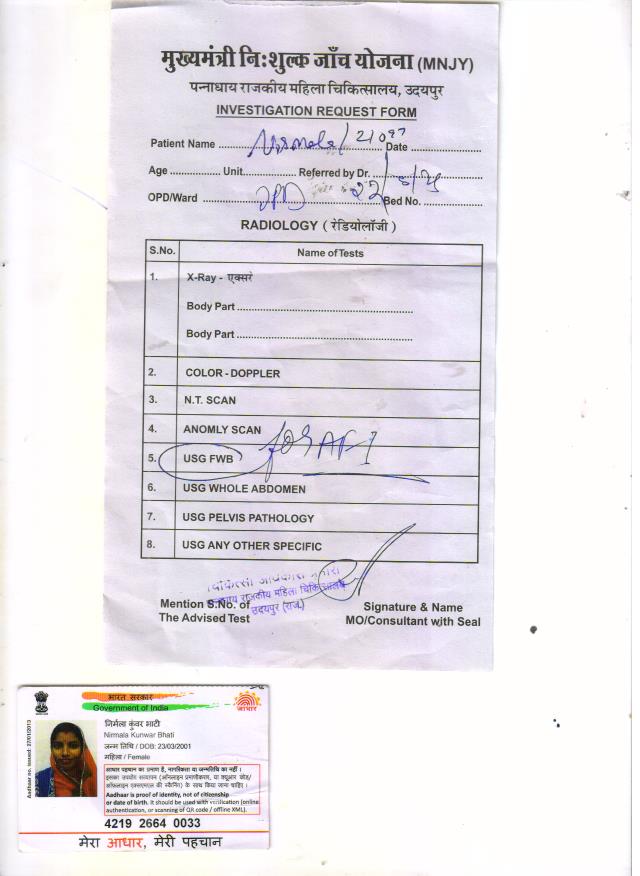 मुख्यमंत्री निःशुल्क जाँच योजना (MNJY)
पन्नाधाय राजकीय महिला चिकित्सालय, उदयपुर
INVESTIGATION REQUEST FORM
Patient Name ........ Nirmala / 21097 Date ........
Age ........ Unit........ Referred by Dr. ........
OPD/Ward ........ OPD 22/ Bed No. ........
RADIOLOGY ( रेडियोलॉजी )
S.No. Name of Tests
1. X-Ray - एक्सरे
Body Part ........
Body Part ........
2. COLOR - DOPPLER
3. N.T. SCAN
4. ANOMLY SCAN
for AFI
5. USG FWB
6. USG WHOLE ABDOMEN
7. USG PELVIS PATHOLOGY
8. USG ANY OTHER SPECIFIC
चिकित्सा अधिकारी प्रभारी
पन्नाधाय राजकीय महिला चिकित्सालय
उदयपुर (राज.)
Mention S.No. of Signature & Name
The Advised Test MO/Consultant with Seal
भारत सरकार
Government of India
आधार
Aadhaar no. issued: 27/01/2013
निर्मला कुंवर भाटी
Nirmala Kunwar Bhati
जन्म तिथि / DOB: 23/03/2001
महिला / Female
आधार पहचान का प्रमाण है, नागरिकता या जन्मतिथि का नहीं।
इसका उपयोग सत्यापन (ऑनलाइन प्रमाणीकरण, या क्यूआर कोड/
ऑफलाइन एक्सएमएल की स्कैनिंग) के साथ किया जाना चाहिए।
Aadhaar is proof of identity, not of citizenship
or date of birth. It should be used with verification (online
authentication, or scanning of QR code / offline XML).
4219 2664 0033
मेरा आधार, मेरी पहचान